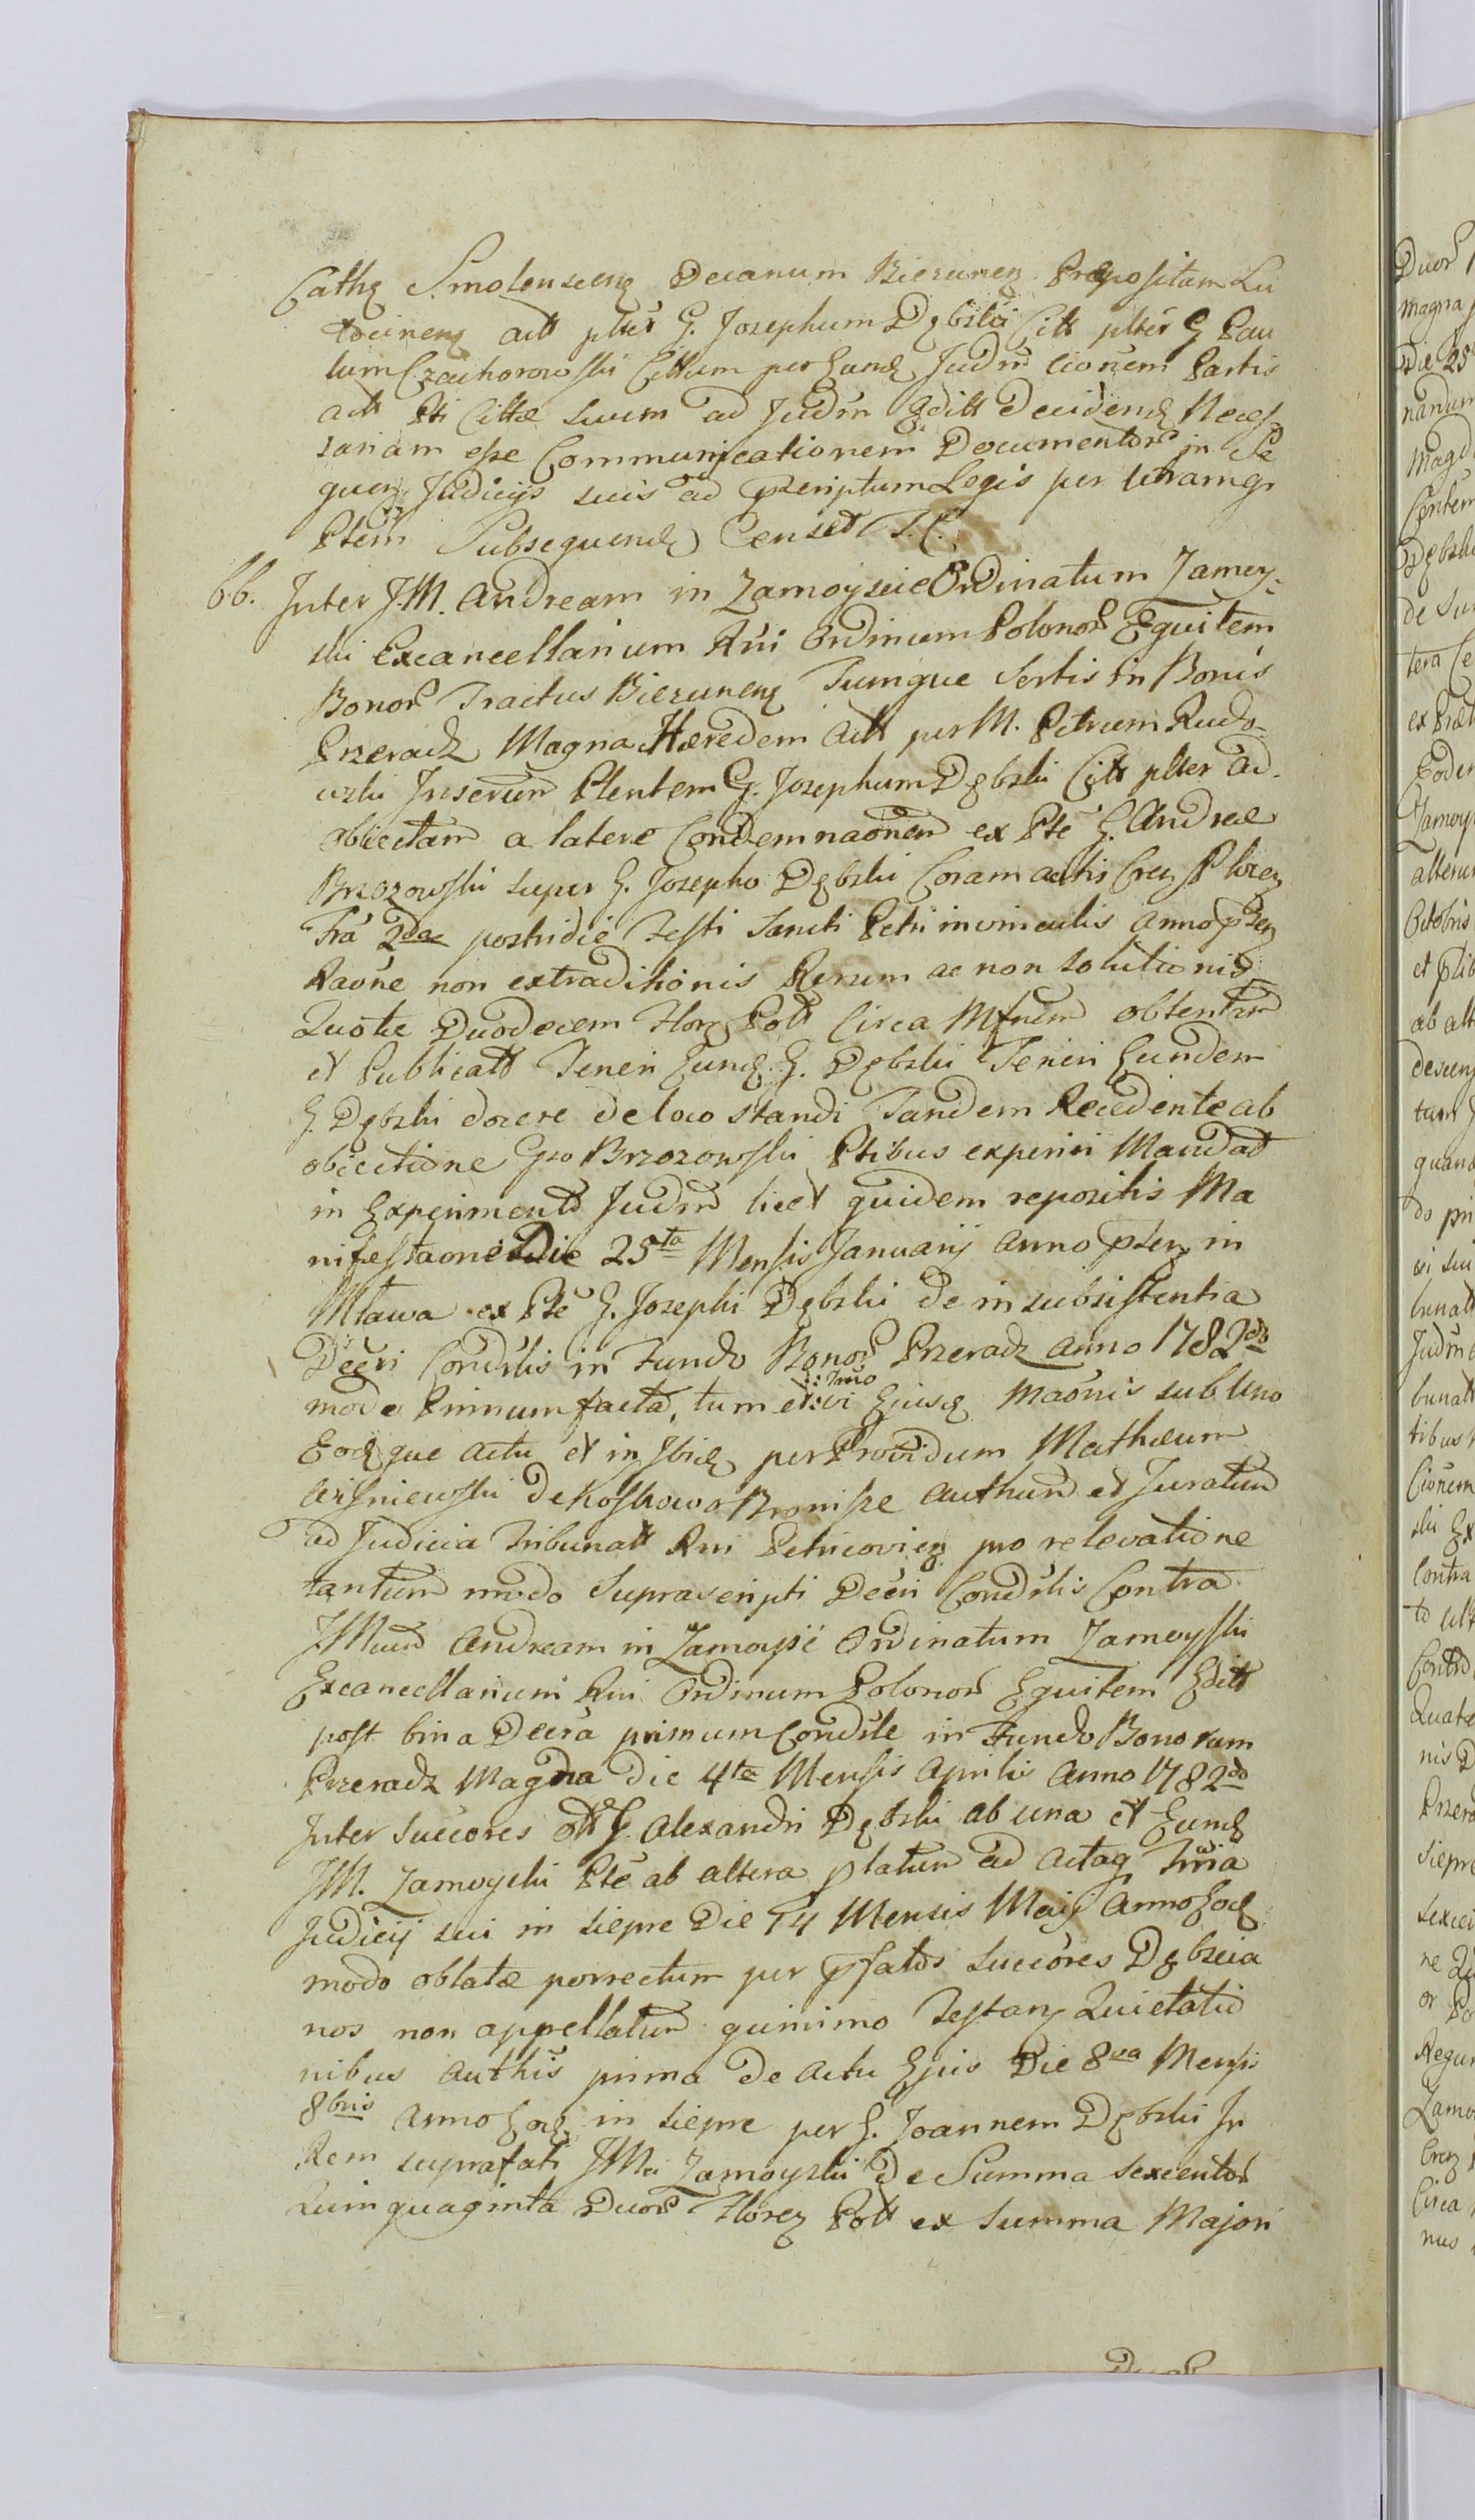 Cathq Smolenscenq Decanum Bieżunenq Præpositum Lu
tocinenq act plter G. Josephum Dębski Citt plter G Pau
lum Czachorowski Cittum per Eund Judm cionem Partis
act Pti Cittæ suum ad Judm Editt Decidend Necess
sariam esse Communicationem Documentor in Se
quenq Judicijs suis ad Præscriptum Legis per utramq
Ptem Subsequend Censet T. C.
66. Inter J.M. Andream in Zamoyscie Ordinatum Zamoy-
ski Excancellarium Rni Ordinum Polonor Equitem
Bonor Tractus Bieżunenq Tumque Sortis in Bonis
Przeradz Magna Hæredem Actt per M. Petrum Rudo-
wski Inserum Plentem G. Josephum Dębski Citt plter ad
obiectam a latere Condemnaonem ex Pte G. Andreæ
Brzozowski super G. Josepho Dębski Coram actis Crez Plocen
Fra 2dae postridie Festi Sancti Petri in vinculis anno pten
Raone non extraditionis Rerum ac non solutionis
Quotæ Duodecem Flor Poll Circa Mtrum obtentam
et Publicatt Teneri Eund G. Dębski Teneri Eundem
G. Dębski docere de loco standi Tandem Recedente ab
obiectione Gso Brzozowski Ptibus experiri Mandat
in Experimento Judm licet quidem repositis Ma
nifestaone Die 25ta Mensis Januarij anno pten in
Mława ex Pte G. Josephi Dębski de insubsistentia
Decri Condslis in Fundo Bonor Przeradz anno 1782do
modo Primum facta, tum et vi Ejusd Maonis sub Uno
Eodque actu et in Ibid per Providum Mathæum
Wiśniewski De Koskowo Bronisze authum et Juratum
ad Judicia Tribunatt Rni Petricovien pro relevatione
tantum modo Suprascripti Decri Condslis Contra
JMum Andream in Zamoyście Ordinatum Zamoyski
Excancellarium Rni Ordinum Polonor Equitem Editt
post bina Decra primum Condsle in Fundo Bonorum
Przeradz Magna die 4ta Mensis Aprilis anno 1782do
Inter Succores ott G. Alexandri Dębski ab una et Eund
JM. Zamoyski Pte ab altera platum ad acta Trria
Judicij sui in Siepre Die 14 Mensis Maij Anno Eod
modo oblatæ porrectum per pfatos Succores Dębscia
nos non appellatum quinimo Testan Quietatio
nibus authis prima de actu Ejus Die 8va Mensis
8bris anno Eod in Siepre per G. Joannem Dębski In
Rem suprafati JMi Zamoyski de Summa Sexcentor
Quinquaginta Duor Floren Poll ex Summa Majori